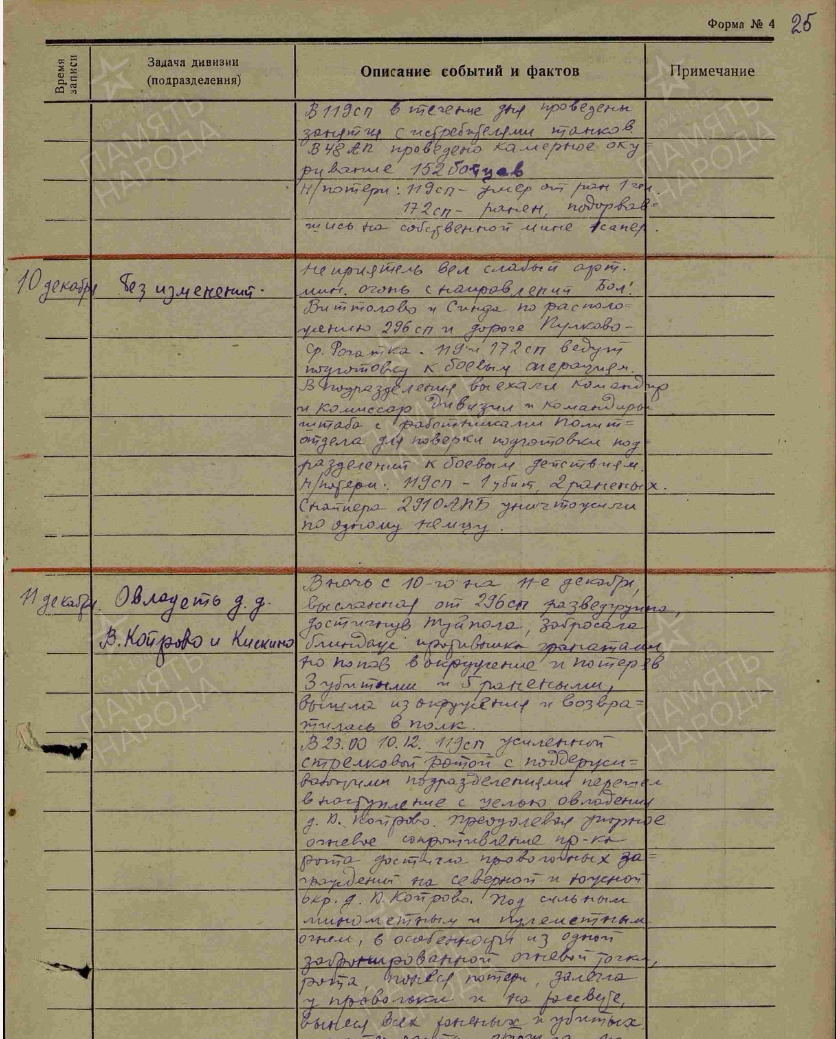 Форма № 4
25
Время записи
Задача дивизии
(подразделения)
Описание событий и фактов
Примечание
В 119сп в течение дня проведены
занятия с истребителями танков.
В 48 АП проведено камерное оку-
ривание 152 бойцев
Н/потери: 119сп – умер от ран 1 чел.
172сп – ранен, подорвав-
шись на собственной мине 1 сапер.
10 декабря
Без изменений.
Неприятель вел слабый арт.
мин. огонь с направлений Бол.
Виттолово и Синда по располо-
жению 296сп и дороге Пулково-
Ср. Рогатка. 119 и 172сп ведут
подготовку к боевым операциям.
В подразделения выехали командир
и комиссар Дивизии и командиры
штаба с работниками Полит-
отдела для поверки подготовки под-
разделений к боевым действиям.
Н/потери: 119сп – 1 убит, 2 раненых.
Снайпера 291 ОАПБ уничтожили
по одному немцу.
11 декабря
Овладеть д.д.
В. Койрово и Кискино
В ночь с 10-го на 11-е декабря,
высланная от 296сп разведгруппа,
достигнув Туйпола, забросала
блиндаж противника гранатами,
но попав в окружение и потеряв
3 убитыми и 5 ранеными,
вышла из окружения и возвра-
тилась в полк.
В 23.00 10.12. 119сп усиленной
стрелковой ротой с поддержи-
вающими подразделениями перешел
в наступление с целью овладения
д. В. Койрово. Преодолевая упорное
огневое сопротивление пр-ка
рота достигла проволочных за-
граждений на северной и южной
окр. д. В. Койрово. Под сильным
минометным и пулеметным
огнем, в особенности из одной
забронированной огневой точки,
рота, понеся потери, залегла
у проволоки и на рассвете,
вынеся всех раненых и убитых
ПАМЯТЬ
НАРОДА
ПАМЯТЬ
НАРОДА
ПАМЯТЬ
НАРОДА
ПАМЯТЬ
НАРОДА